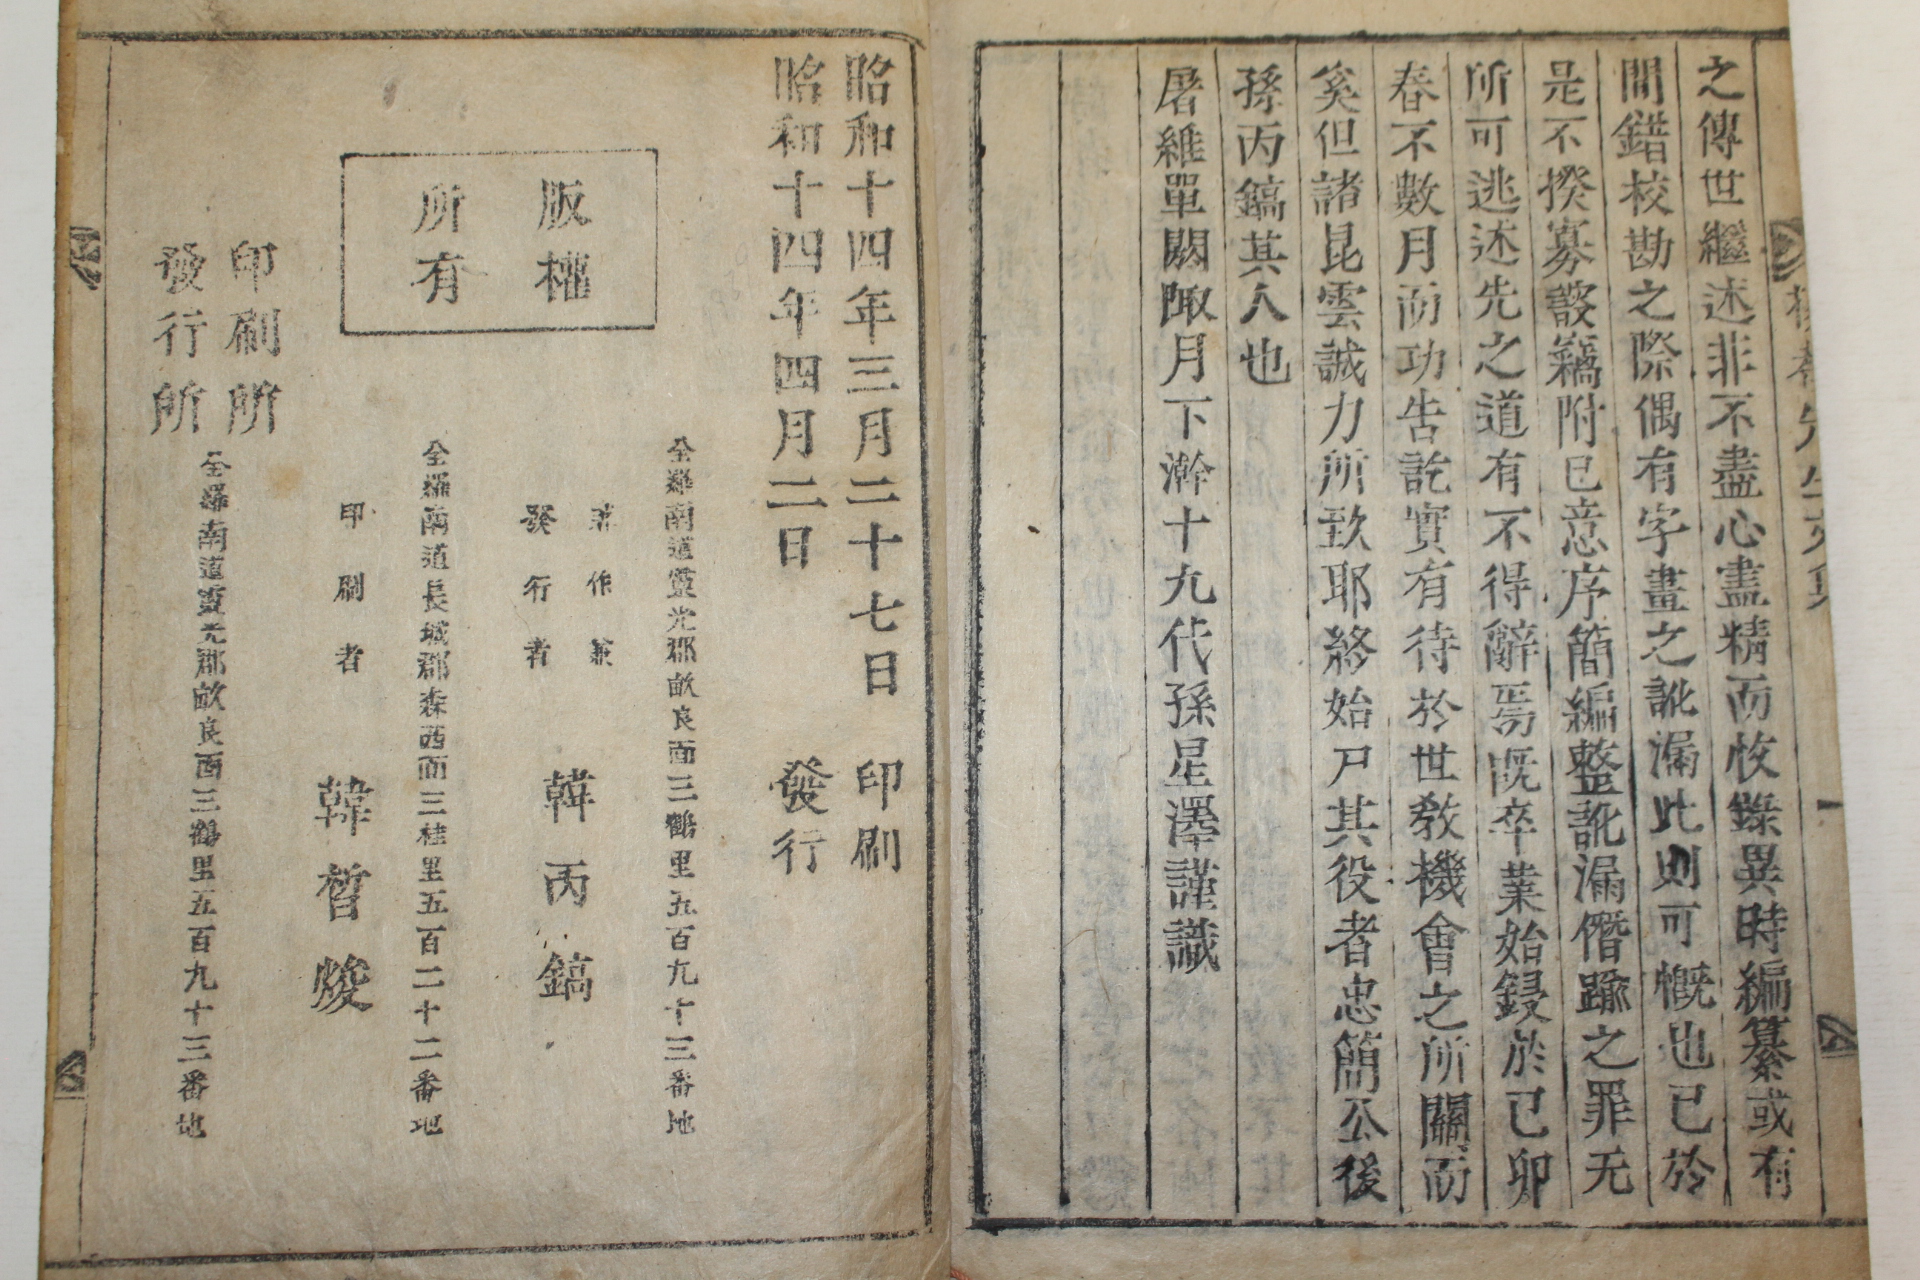 之傳世繼述非不盡心盡精而收錄異時編纂或有
間錯校勘之際偶有字畫之訛漏此則可慨也已於
是不揆寡謏竊附已意序簡編整訛漏僭踰之罪无
所可逃述先之道有不得辭焉旣卒業始鋟於已卯
春不數月而功告訖實有待於世敎機會之所關而
奚但諸昆雲誠力所致耶終始尸其役者忠簡公後
孫丙鎬其人也
屠維單閼陬月下澣十九代孫星澤謹識
昭和十四年三月二十七日 印刷
昭和十四年四月二日 發行
版權
所有
全羅南道靈光郡畝良面三鶴里五百九十三番地
著作兼
發行者 韓丙鎬
全羅南道長城郡森西面三桂里五百二十二番地
印刷者 韓晳焌
印刷所
發行所
全羅南道靈光郡畝良面三鶴里五百九十三番地